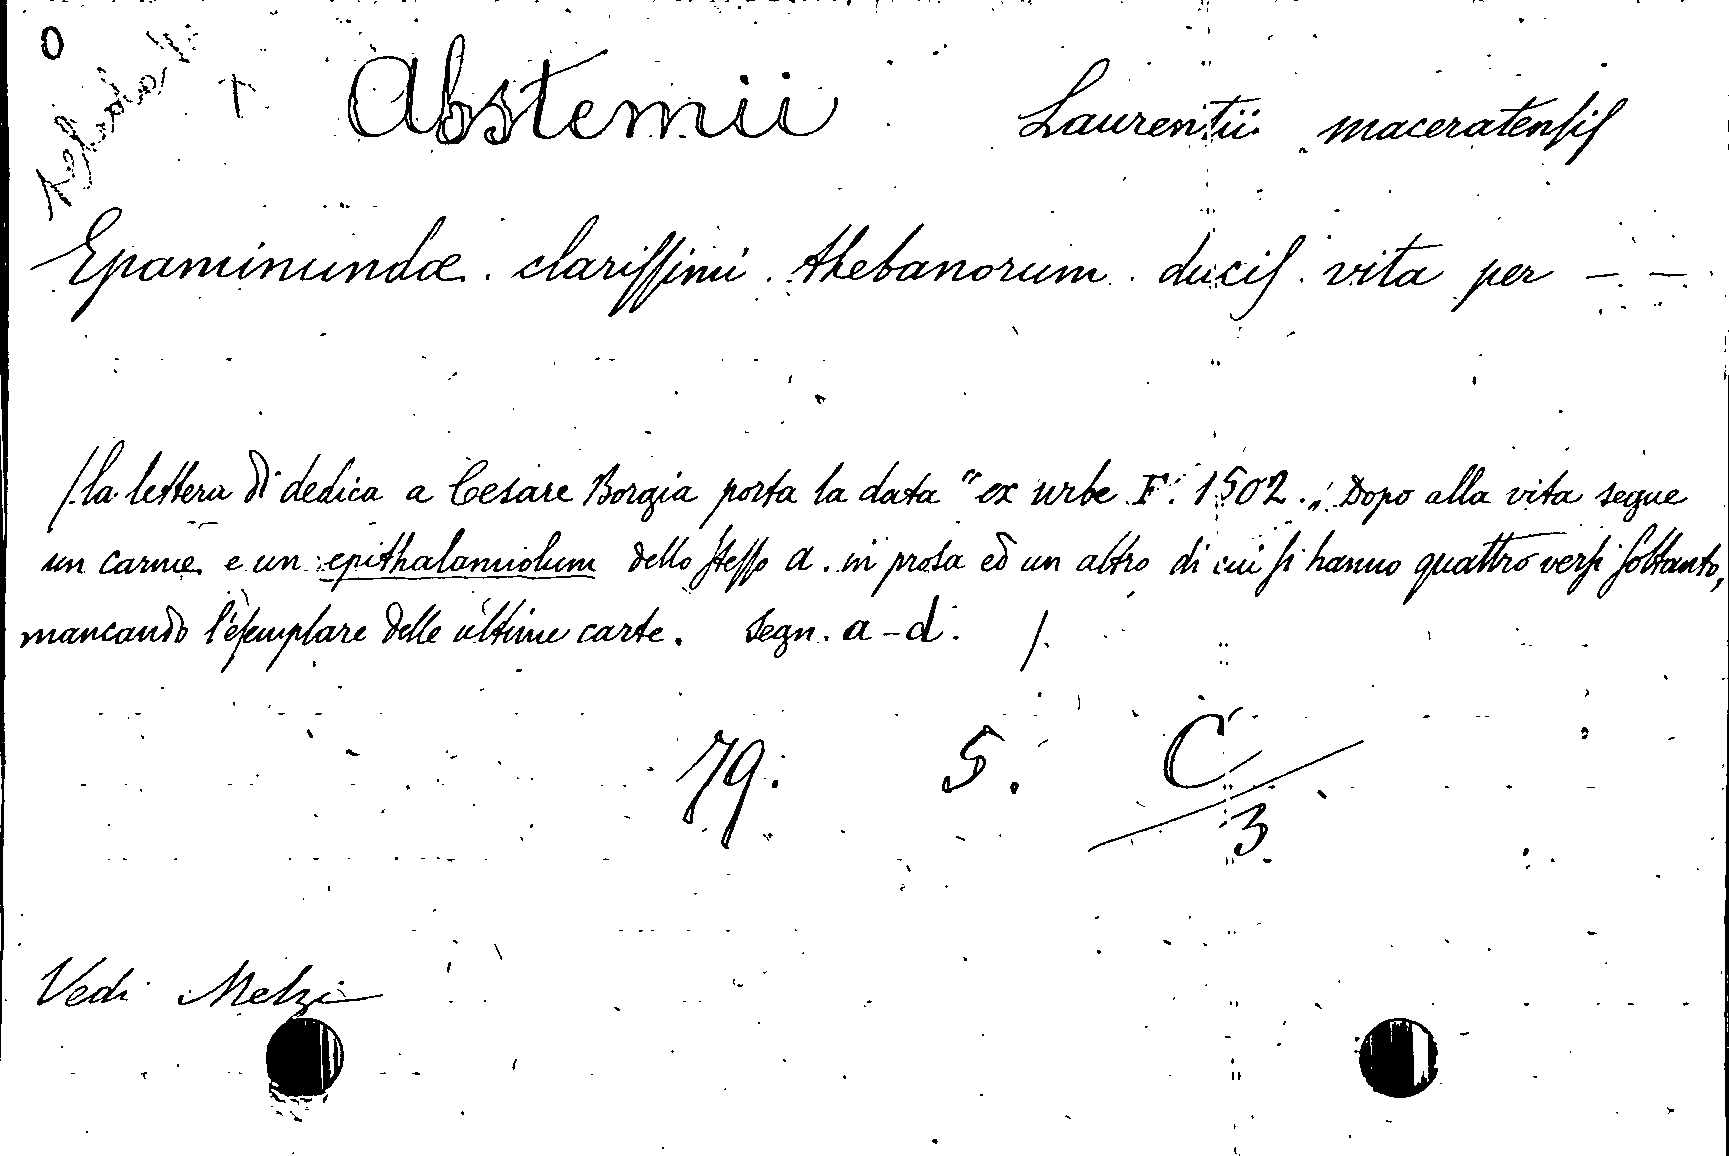 O
+ Abstemii Laurentii maceratensis
Epaminundæ clarissimi thebanorum ducis vita per — —
/ la lettera di dedica a Cesare Borgia porta la data "ex urbe F. 1502.„ Dopo alla vita segue
un carme e un epithalamiolum dello stesso a. in prosa ed un altro di cui si hanno quattro versi soltanto,
mancando l'esemplare delle ultime carte. Segn. a-d. /.
79. 5. C/3
Vedi Melzi